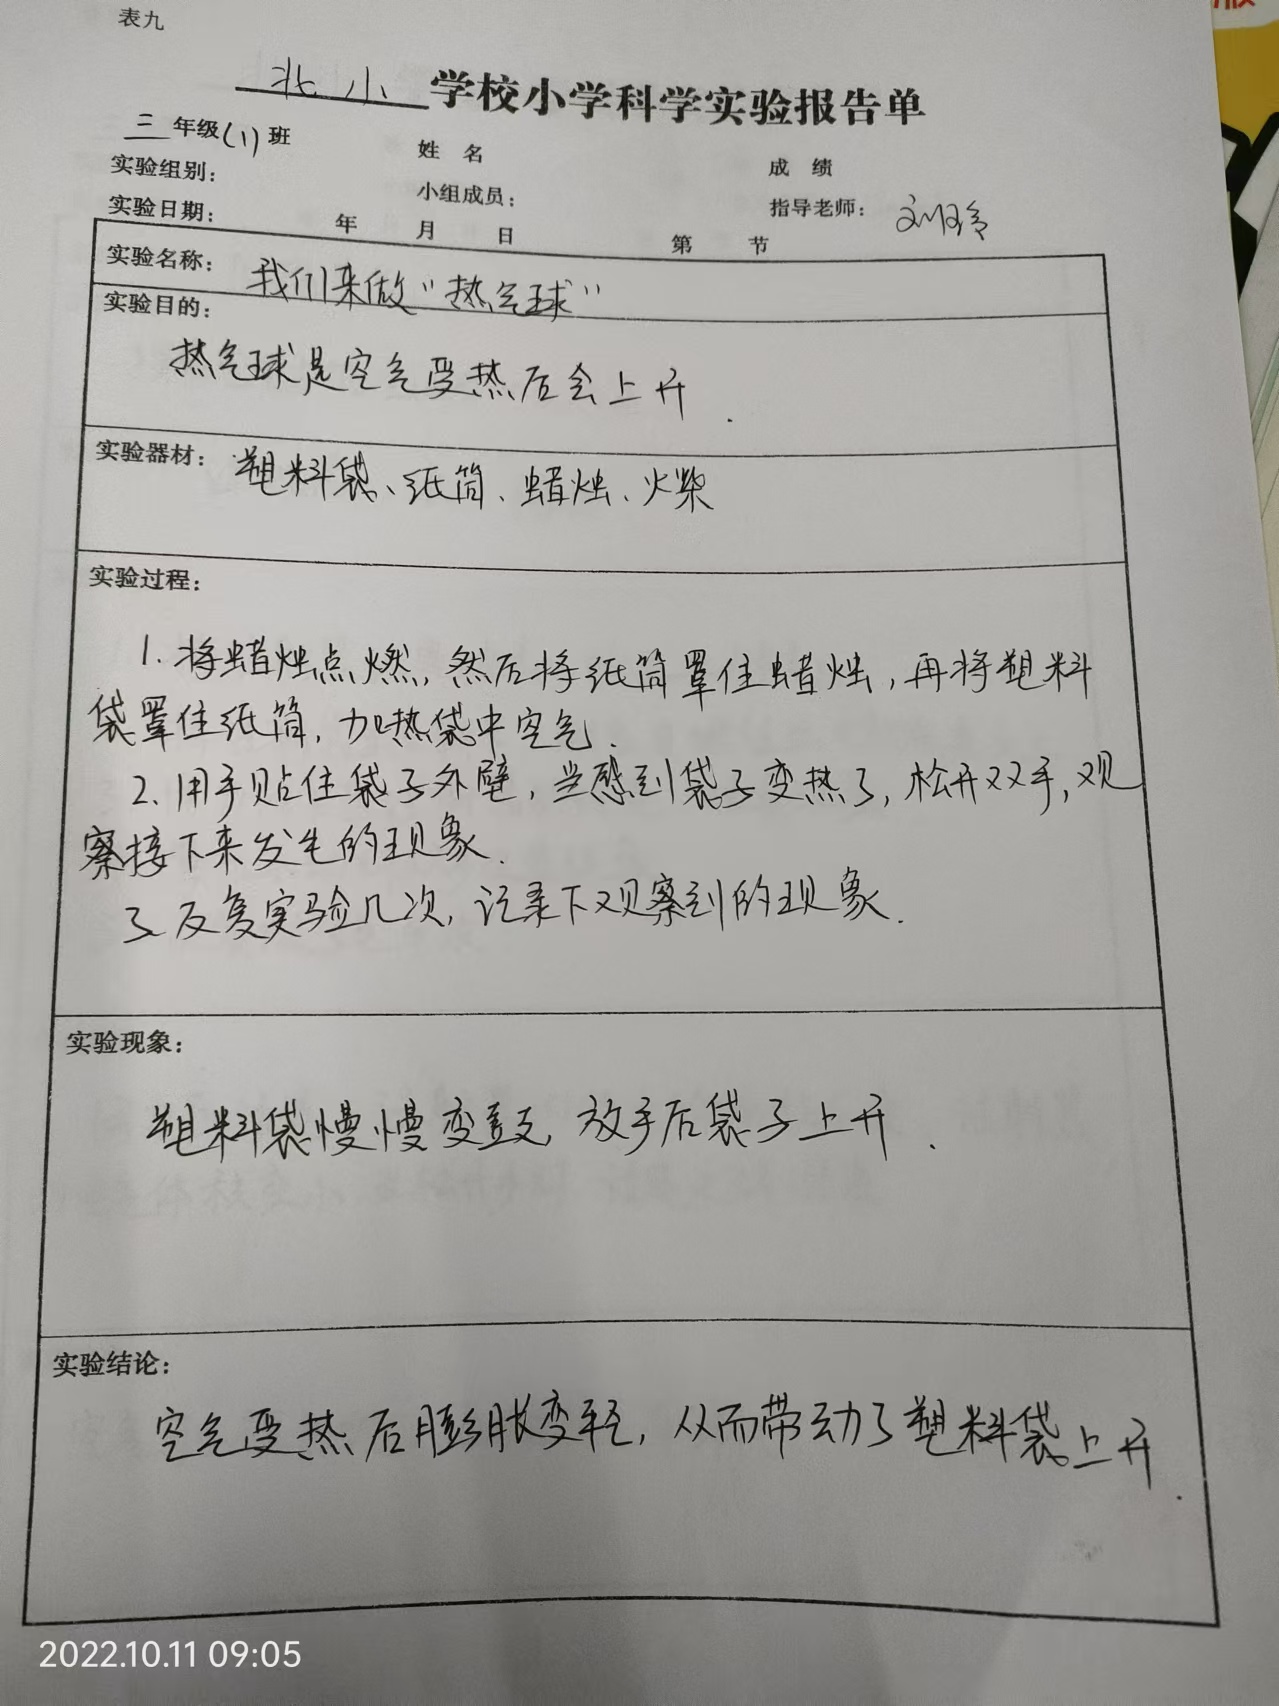 表九
北小学校小学科学实验报告单
三年级(1)班 姓 名 成 绩
实验组别: 小组成员: 指导老师: 刘玲
实验日期: 年 月 日 第 节
实验名称: 我们来做“热气球”
实验目的:
热气球是空气受热后会上升.
实验器材: 塑料袋、纸筒、蜡烛、火柴
实验过程:
1. 将蜡烛点燃,然后将纸筒罩住蜡烛,再将塑料
袋罩住纸筒,加热袋中空气.
2. 用手贴住袋子外壁,当感到袋子变热了,松开双手,观
察接下来发生的现象.
3 反复实验几次,记录下观察到的现象.
实验现象:
塑料袋慢慢变鼓,放手后袋子上升.
实验结论:
空气受热后膨胀变轻,从而带动了塑料袋上升.
2022.10.11 09:05